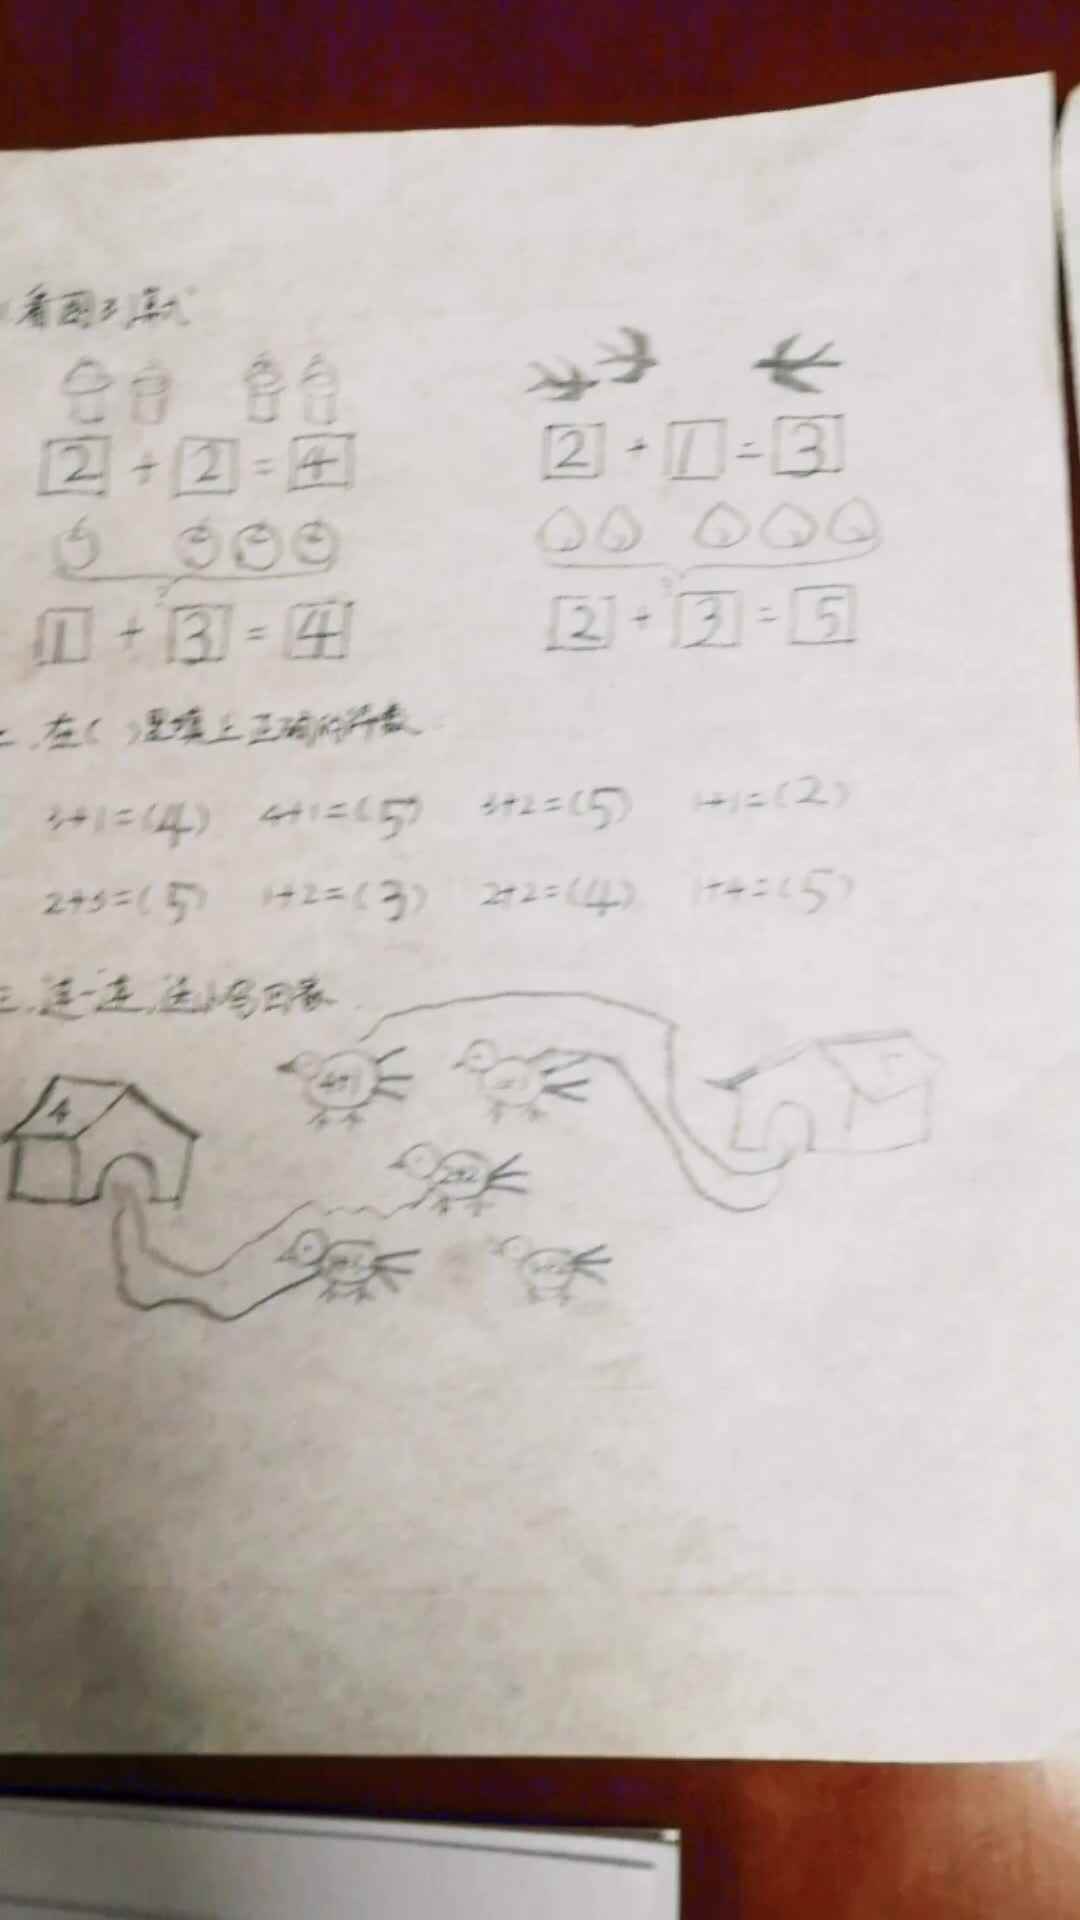 看图列算式
2 + 2 = 4 2 + 1 = 3
1 + 3 = 4 2 + 3 = 5
二、在( )里填上正确的得数
3+1=(4) 4+1=(5) 3+2=(5) 1+1=(2)
2+3=(5) 1+2=(3) 2+2=(4) 1+4=(5)
三、连一连,送小鸟回家
4+1
4
2+2